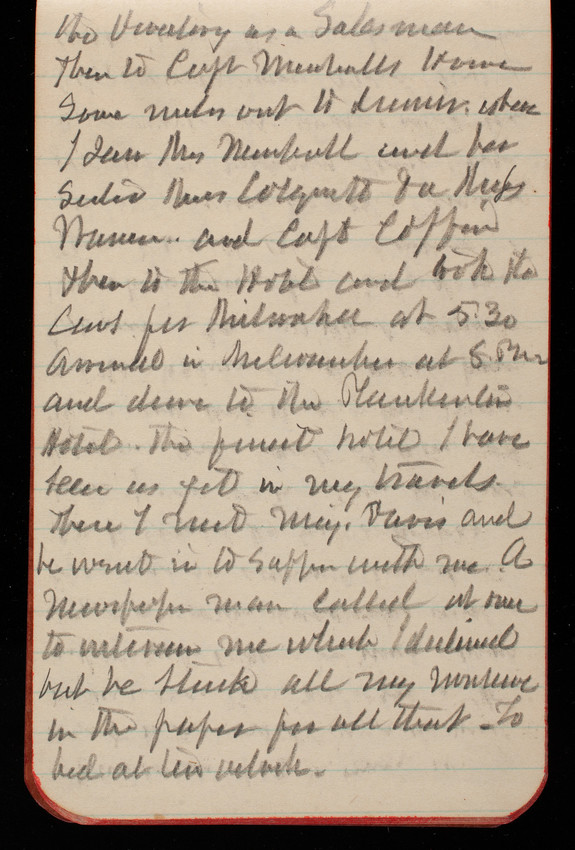 the Directory as a Salesman
Then to Capt Mendalls Home
Some miles out to dinner. where
I saw Mrs Mendall and her
Sister Mrs Colquitt & a Miss
Warren. and Capt Coffin
then to the Hotel and took the
Cars for Milwaukee at 5.30
Arrived in Milwaukee at 8 PM
and drove to the Plankinton
Hotel. The finest hotel I have
seen as yet in my travels.
There I met Maj. Davis and
he went in to supper with me. A
Newspaper man called at once
to interview me which I declined
but he stuck all my nonsense
in the paper for all that. To
bed at ten oclock.